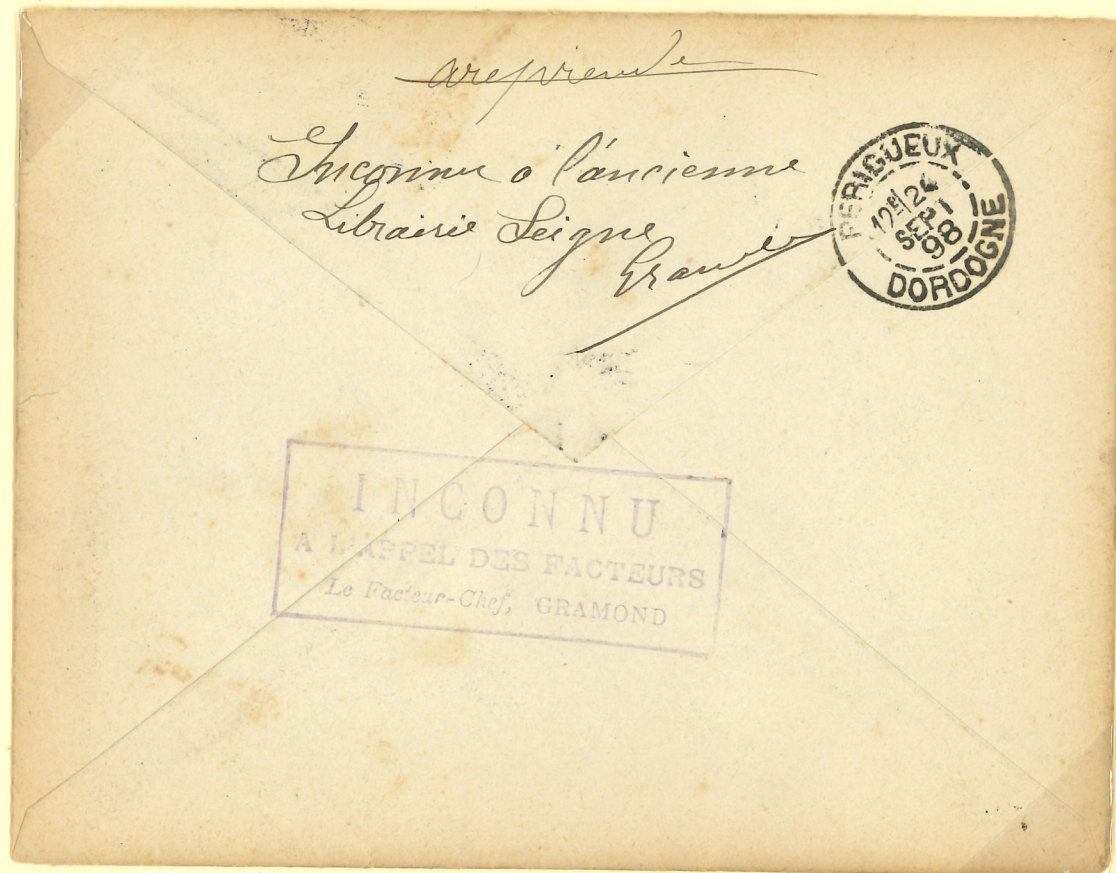 areprendre
Inconnu à l'ancienne
Librairie Seigne
PERIGUEUX
12E/24
SEPT
98
DORDOGNE
INCONNU
A L'APPEL DES FACTEURS
Le Facteur-Chef, GRAMOND